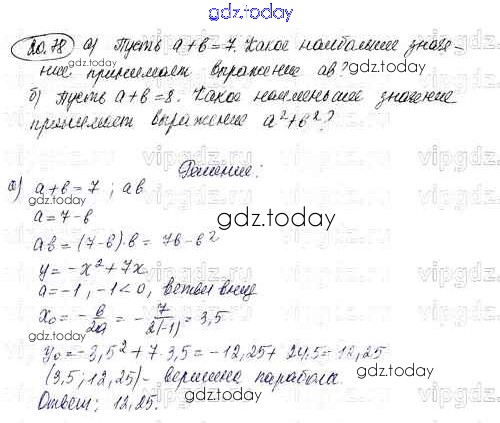 gdz.today
20.78 а) Пусть a+b=7. Какое наибольшее значе-
ние принимает выражение ab?
gdz.today
б) Пусть a+b=8. Какое наименьшее значение
принимает выражение a²+b²?
vipgdz.ru
Решение:
а) a+b=7; ab
a=7-b
gdz.today
ab=(7-b)·b=7b-b²
y=-x²+7x
a=-1, -1<0, ветви вниз
x₀=-b/2a=-7/2(-1)=3,5
gdz.today
y₀=-3,5²+7·3,5=-12,25+24,5=12,25
(3,5; 12,25) - вершина парабола.
Ответ: 12,25.
gdz.today